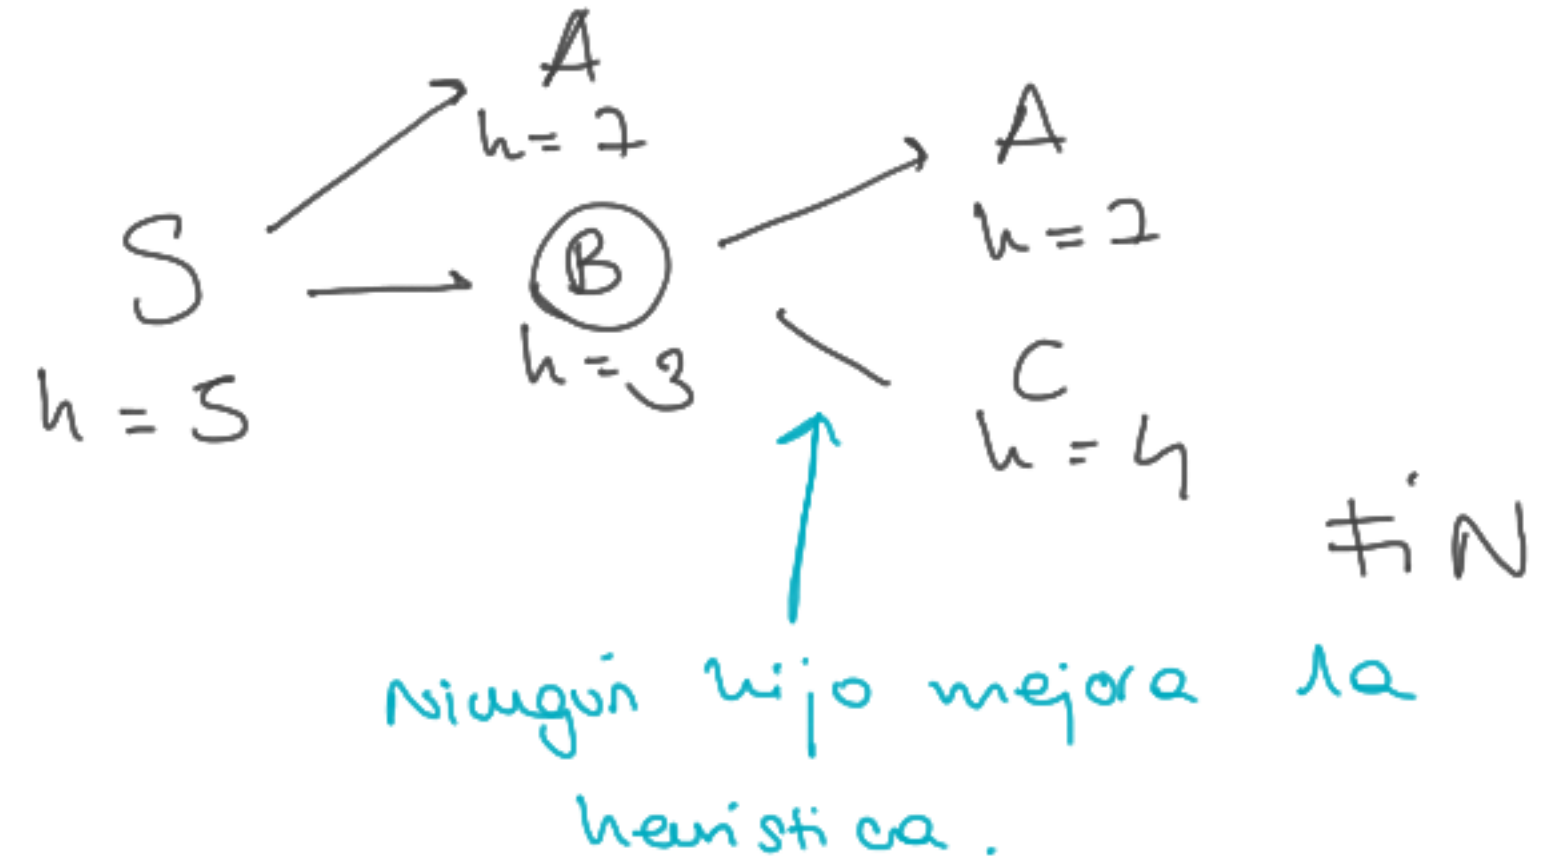 A
h = 7
S
h = 5
B
h = 3
A
h = 7
C
h = 4
FiN
Ningún hijo mejora la
heurística.